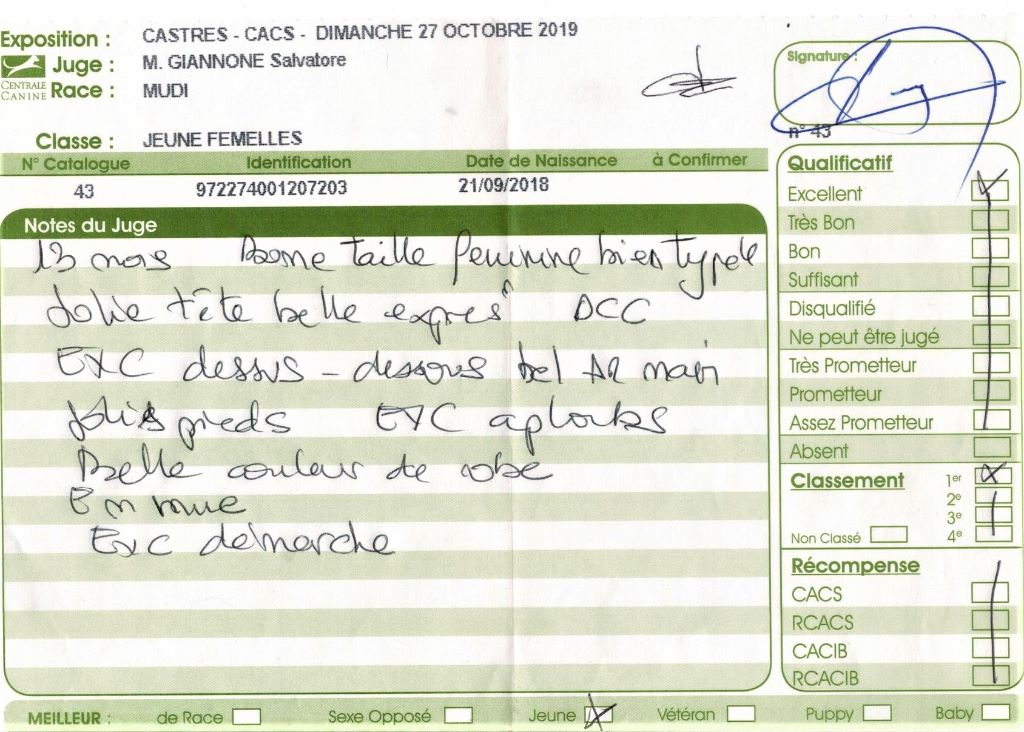 Exposition : CASTRES - CACS - DIMANCHE 27 OCTOBRE 2019
Juge : M. GIANNONE Salvatore
CENTRALE CANINE
Race : MUDI
Signature :
n° 43
Classe : JEUNE FEMELLES
N° Catalogue Identification Date de Naissance à Confirmer
43 972274001207203 21/09/2018
Notes du Juge
13 mois Bonne taille féminine bien typée
Jolie tête belle expres° DCC
EXC dessus - dessous bel AR main
Jolis pieds EXC aplombs
Belle couleur de robe
En mue
Exc démarche
Qualificatif
Excellent
Très Bon
Bon
Suffisant
Disqualifié
Ne peut être jugé
Très Prometteur
Prometteur
Assez Prometteur
Absent
Classement 1er
2e
3e
Non Classé 4e
Récompense
CACS
RCACS
CACIB
RCACIB
MEILLEUR : de Race Sexe Opposé Jeune Vétéran Puppy Baby